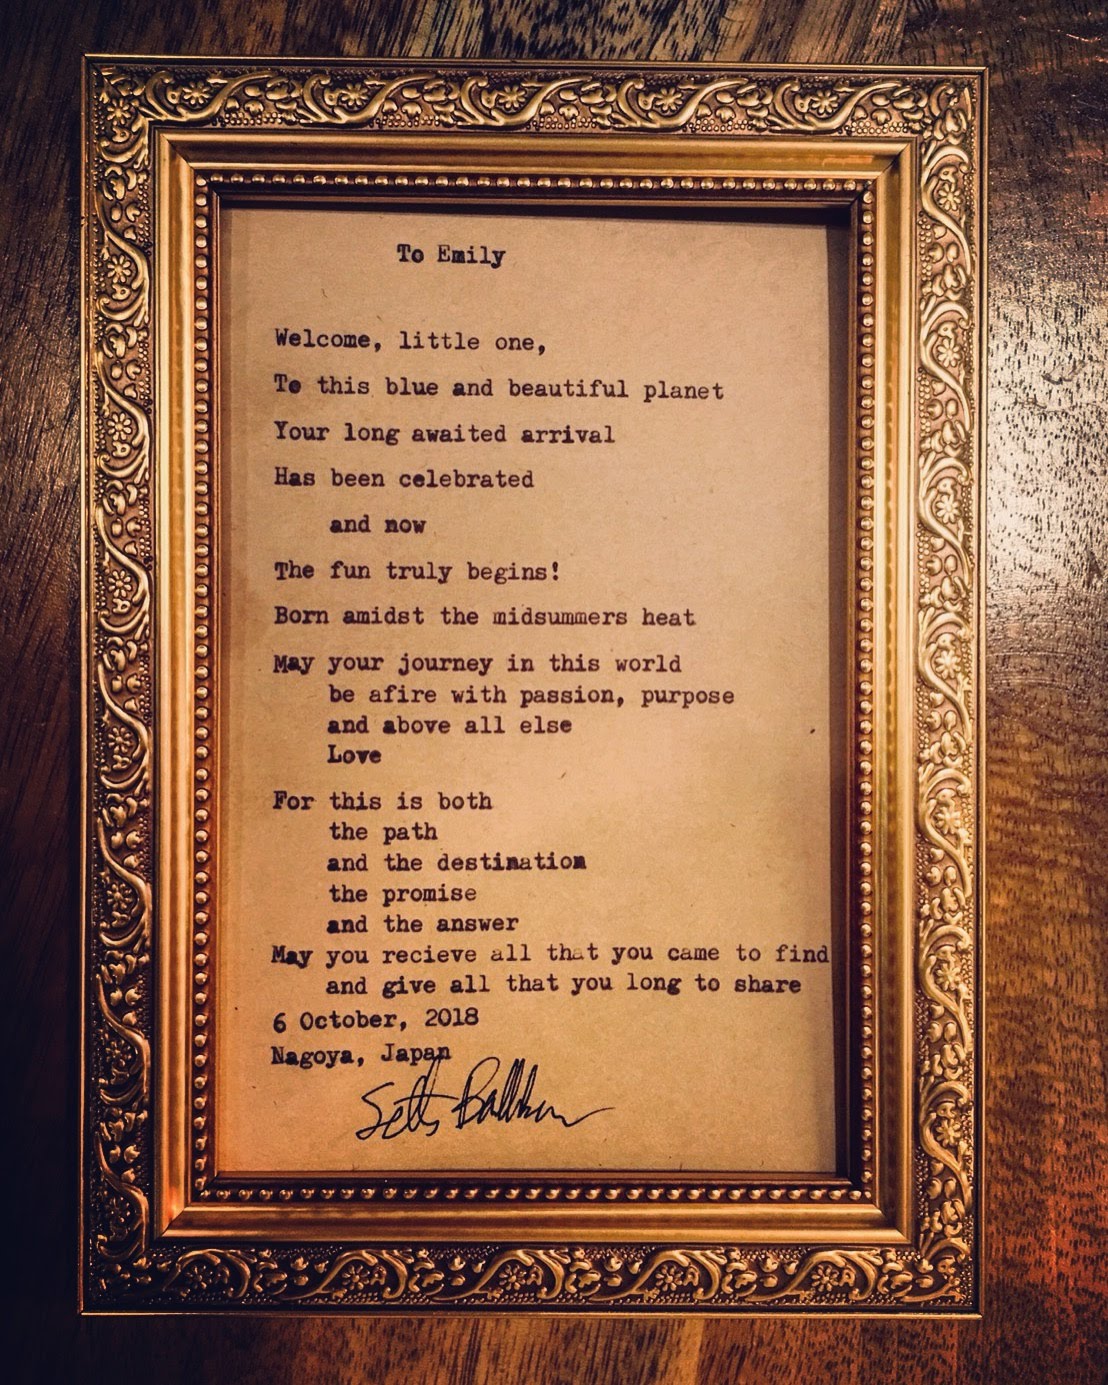 To Emily
Welcome, little one,
To this blue and beautiful planet
Your long awaited arrival
Has been celebrated
and now
The fun truly begins!
Born amidst the midsummers heat
May your journey in this world
be afire with passion, purpose
and above all else
Love
For this is both
the path
and the destination
the promise
and the answer
May you recieve all that you came to find
and give all that you long to share
6 October, 2018
Nagoya, Japan